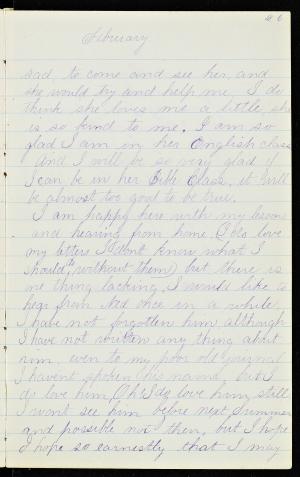 26
February
sad, to come and see her, and
she would try and help me. I do
think she loves me a little she
is so kind to me. I am so
glad I am in her English class
And I will be so very glad if
I can be in her Bible Class, it will
be almost too good to be true.
I am happy here with my lessons
and hearing from home. (I do love
my letters I don't know what I
should, without them) but there is
one thing lacking. I would like to
hear from Ned once in a while.
I have not forgotten him, although
I have not written any thing about
him, even to my poor old journal
I havent spoken his name, but I
do love him, Oh! I do love him, still
I wont see him before next Summer
and possible not then, but I hope
I hope so earnestly that I may